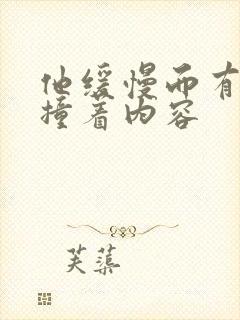 他缓慢而有
撞着内容
芙蕖